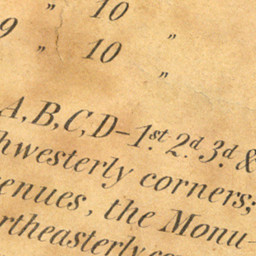 " 10 "
9 " 10 "
A, B, C, D – 1st 2d 3d &
hwesterly corners;
enues, the Monu-
rtheasterly co